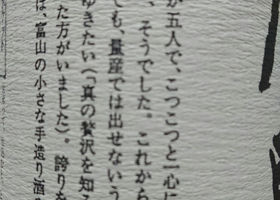 が五人で、こつこつと一心に
、そうでした。これから
ても、量産では出せないう
ゆきたい(「真の贅沢を知る
た方がいました)。誇りを
は、富山の小さな手造り酒